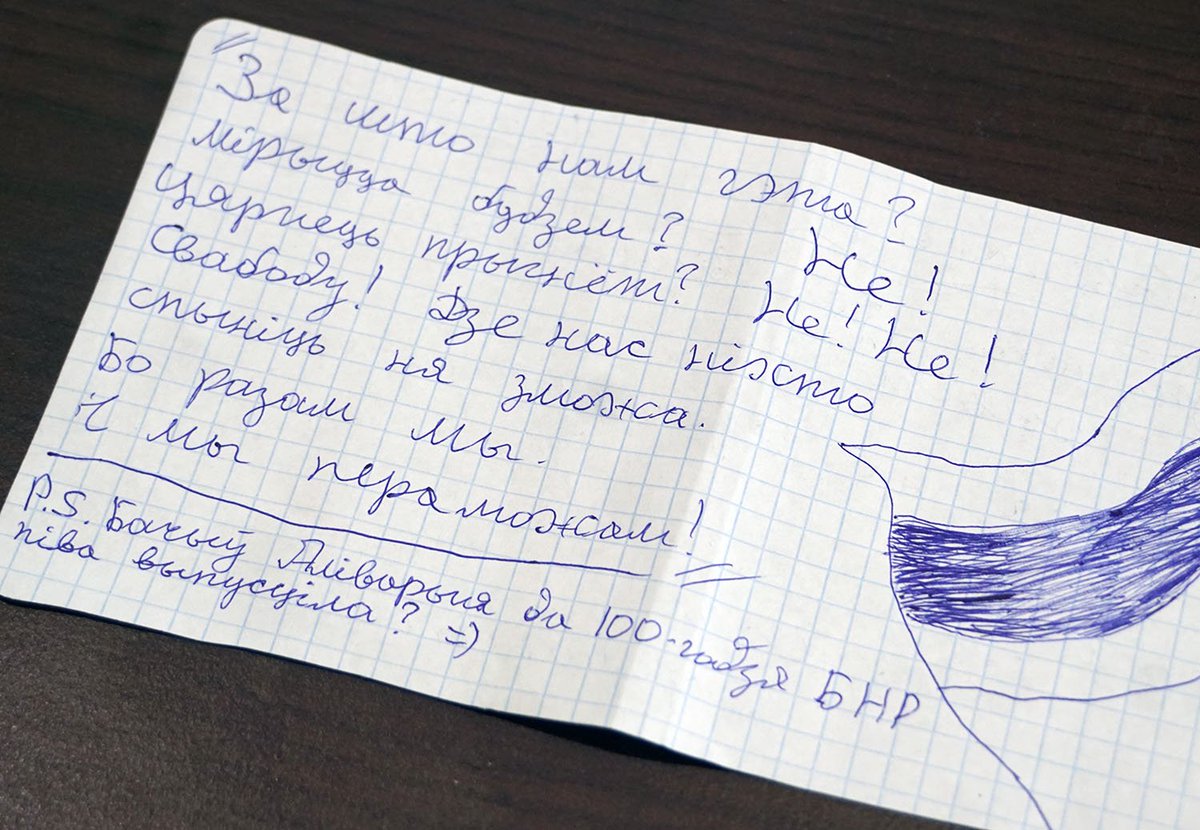 "За што нам гэта?
Мірыцца будзем? Не!
Цярпець прыгнёт? Не! Не!
Свабоду! Дзе нас ніхто
спыніць ня зможа.
Бо разам мы.
І мы пераможам!"
P.S. Бачыў Аліварыя да 100-годзя БНР
піва выпусціла? =)